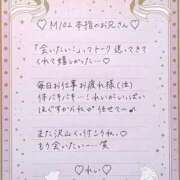 ♡M/Oz 本指のお兄さん♡
「会いたい!」ってトーク送ってきて
くれて嬉しかったー
毎日お仕事お疲れ様(注)
体バキバキー!れいがいっぱい
ほぐすから
任せてー
また沢山くっつこうね♡
もう会いたいー笑
♡れい♡